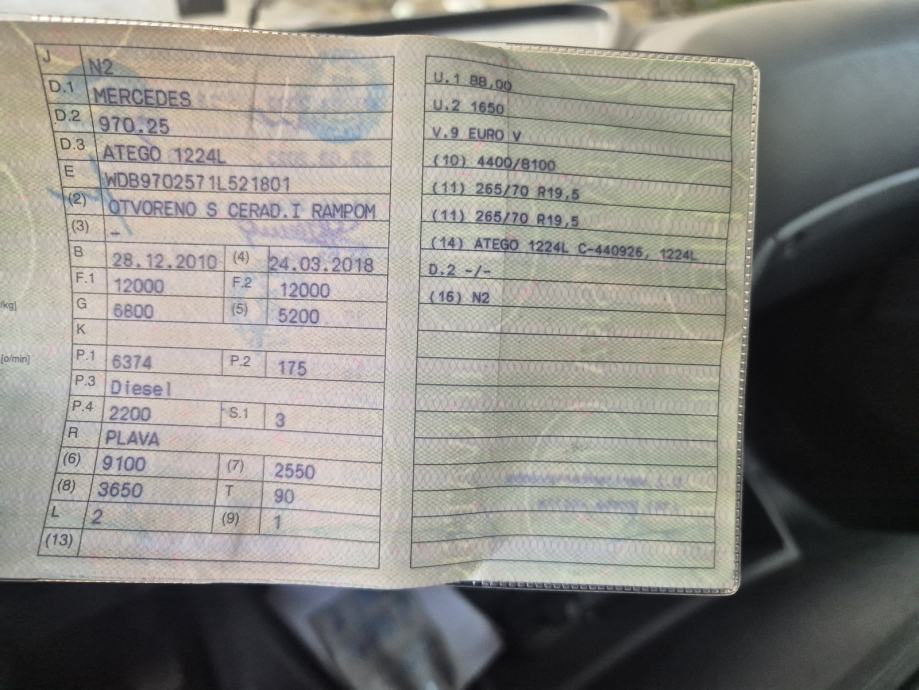 J N2
D.1 MERCEDES
D.2 970.25
D.3 ATEGO 1224L
E WDB9702571L521801
(2) OTVORENO S CERAD.I RAMPOM
(3) –
B 28.12.2010 (4) 24.03.2018
F.1 12000 F.2 12000
G 6800 (5) 5200
/kg]
K
P.1 6374 P.2 175
[o/min]
P.3 Diesel
P.4 2200 S.1 3
R PLAVA
(6) 9100 (7) 2550
(8) 3650 T 90
L 2 (9) 1
(13)
U.1 88,00
U.2 1650
V.9 EURO V
(10) 4400/8100
(11) 265/70 R19,5
(11) 265/70 R19,5
(14) ATEGO 1224L C-440926, 1224L
D.2 -/-
(16) N2